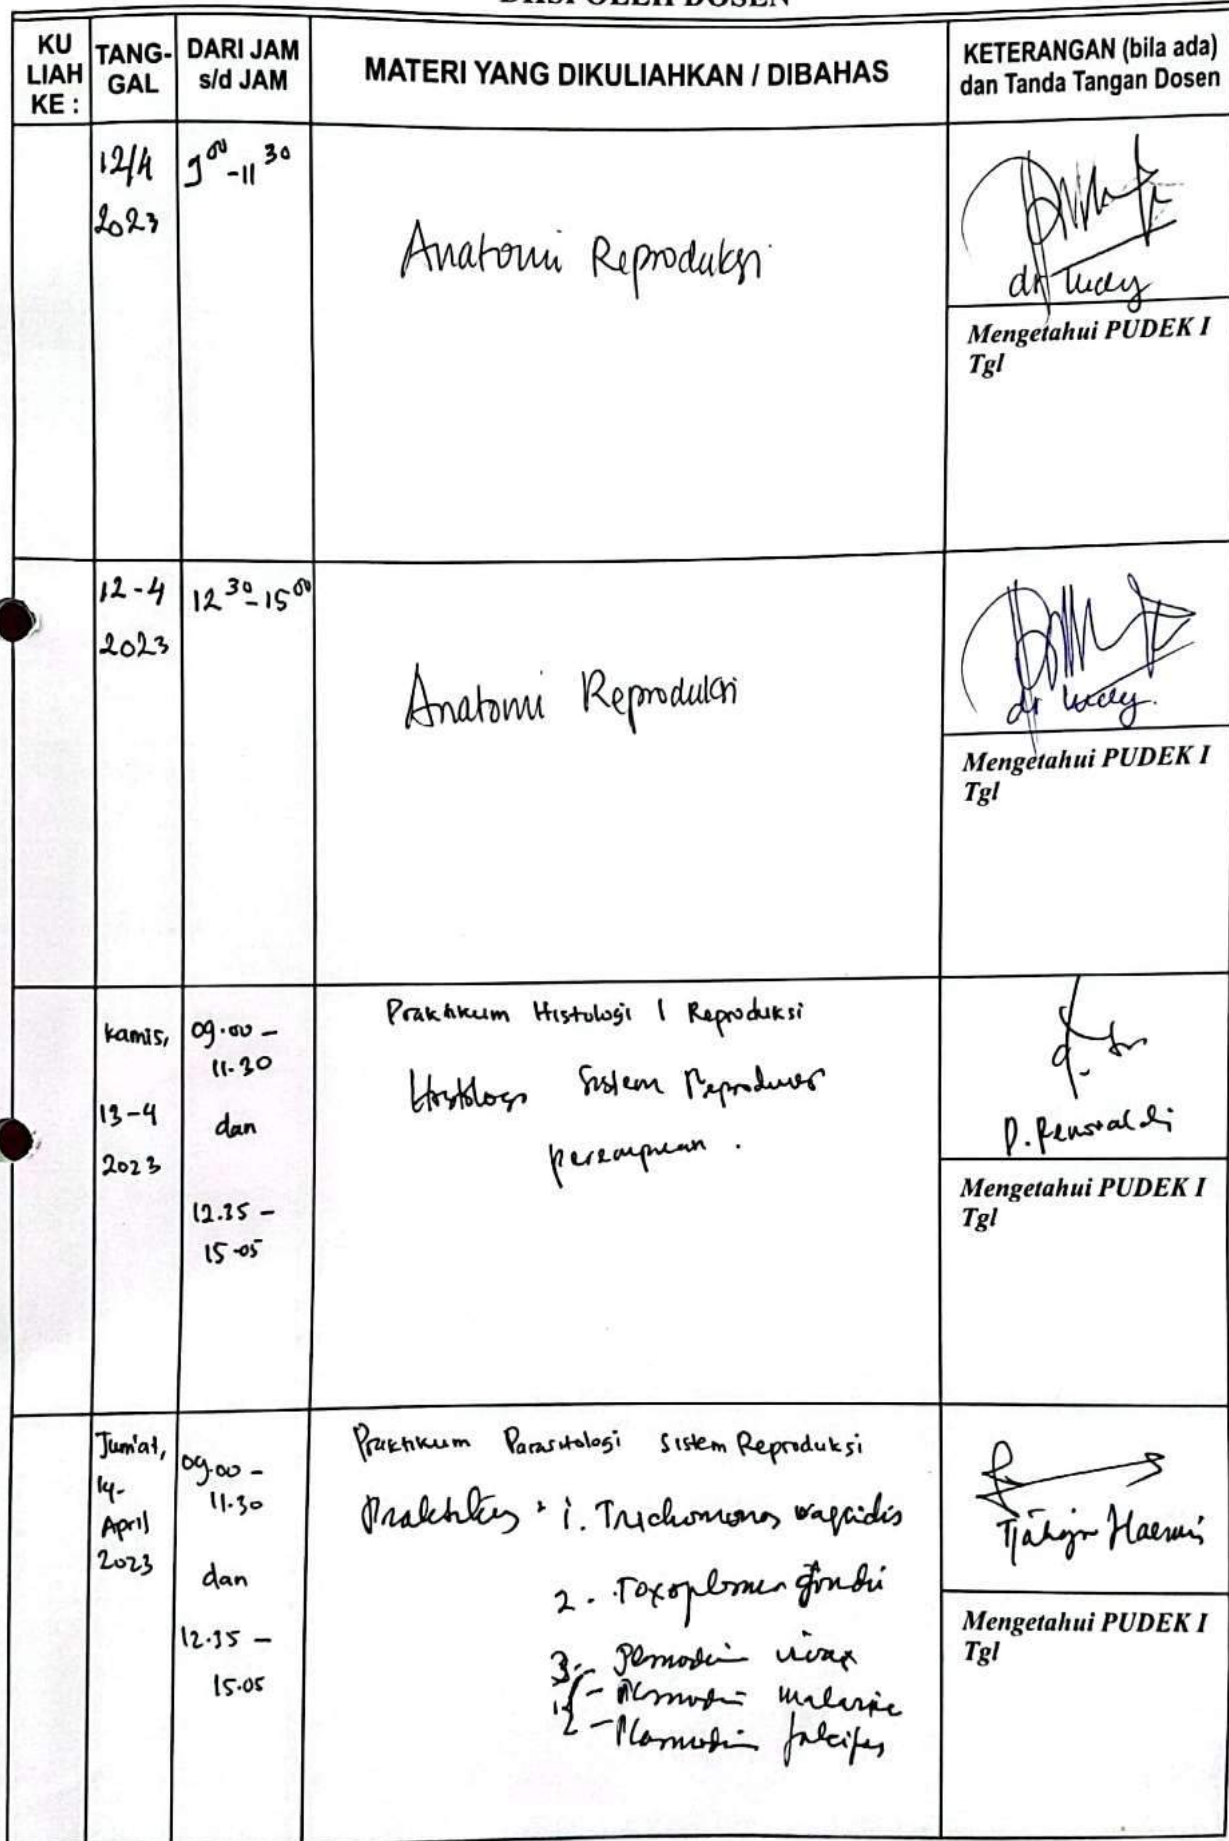 DIISI OLEH DOSEN
KU LIAH KE :
TANG-GAL
DARI JAM s/d JAM
MATERI YANG DIKULIAHKAN / DIBAHAS
KETERANGAN (bila ada) dan Tanda Tangan Dosen
12/4
2023
9⁰⁰-11³⁰
Anatomi Reproduksi
dr Lucy
Mengetahui PUDEK I
Tgl
12-4
2023
12³⁰-15⁰⁰
Anatomi Reproduksi
dr Lucy.
Mengetahui PUDEK I
Tgl
Kamis,
13-4
2023
09.00 -
11.30
dan
12.35 -
15.05
Praktikum Histologi 1 Reproduksi
Histologi Sistem Reproduksi
perempuan.
Mengetahui PUDEK I
Tgl
Jum'at,
14-
April
2023
09.00 -
11.30
dan
12.35 -
15.05
Praktikum Parasitologi Sistem Reproduksi
1. Trichomonas vaginalis
2. Toxoplasma gondii
3. - vivax
- malariae
- Plasmodium
Mengetahui PUDEK I
Tgl